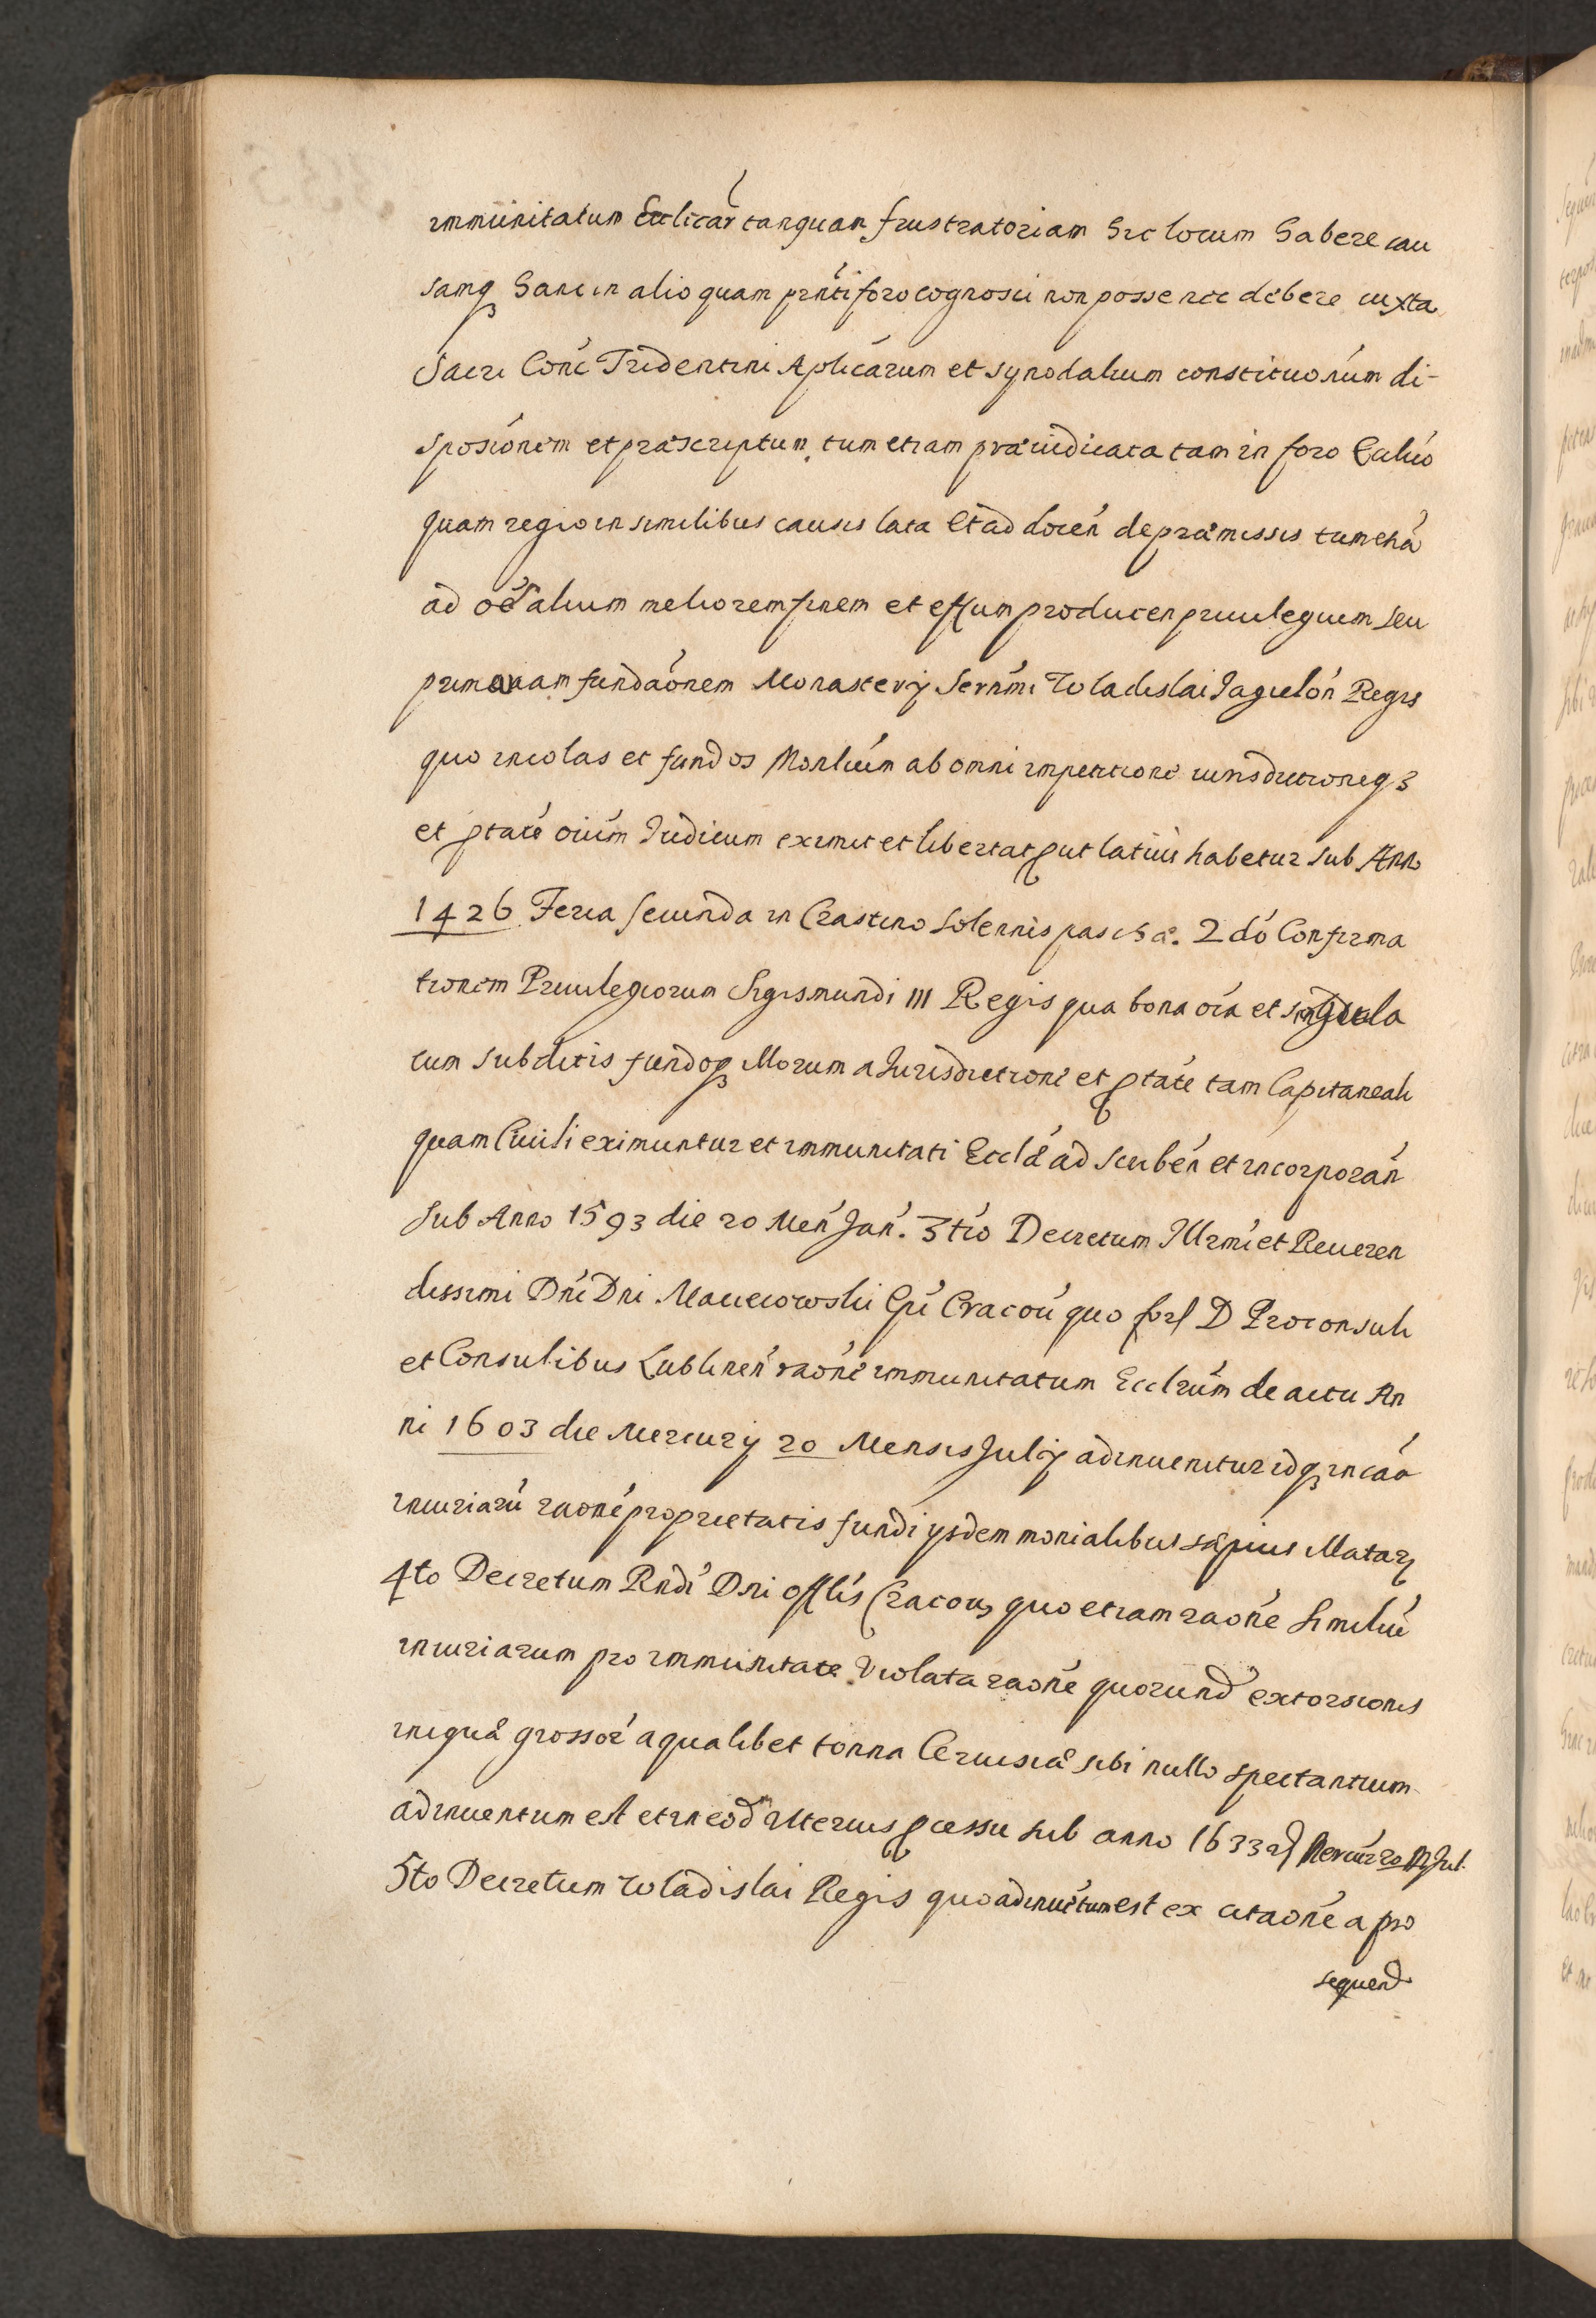 immunitatum Ecclicar tanquam frustratoriam hic locum habere cau
samq hanc in alio quam prnti foro cognosci non posse nec debere iuxta
Sacri Conc Tridentini Aplicarum et synodalium constituonum di-
sposionem et præscriptum, tum etiam præiudicata tam in foro Ecclico
quam regio in similibus causis lata Et ad docen de præmissis tum etia
ad oem alium meliorem finem et effum producen priuilegium seu
primariam fundaonem Monastery Sernmi Wladislai Jagielon Regis
quo incolas et fundos Monlium ab omni impetitione iurisdictioneq3
et ptate oium Judicum eximit et libertat put latius habetur sub Ann
1426 Feria secunda in Crastino solennis paschæ. 2do Confirma
tionem Priuilegiorum Sigismundi III Regis qua bona oia et singula
cum subditis fundoq Morum a Jurisdictione et ptate tam Capitaneali
quam Ciuili eximuntur et immunitati Ecclæ ad scriben et incorporan
sub Anno 1593 die 20 Men Jan. 3tio Decretum Illrmi et Reueren
dissimi Dni Dni Maciejowski Epi Cracou quo fori D Proconsuli
et Consulibus Lublinen raone immunitatum Ecclrum de actu An
ni 1603 die Mercury 20 Mensis July adinuenitur idq in caa
iniuriaru raone proprietatis fundi ysdem monialibus sæpius illatar
4to Decretum Rndi Dni Offlis Cracou, quo etiam raone similiu
iniuriarum pro immunitate Violata raone quorund extorsionis
iniquæ grossor a qualibet tonna Ceruisiæ sibi nullo spectantium
adinuentum est et in eod ulterius pcessu sub anno 1633 d Mercur 20 M Jul.
5to Decretum Wladislai Regis quo adinuetum est ex citaone a pro
sequend